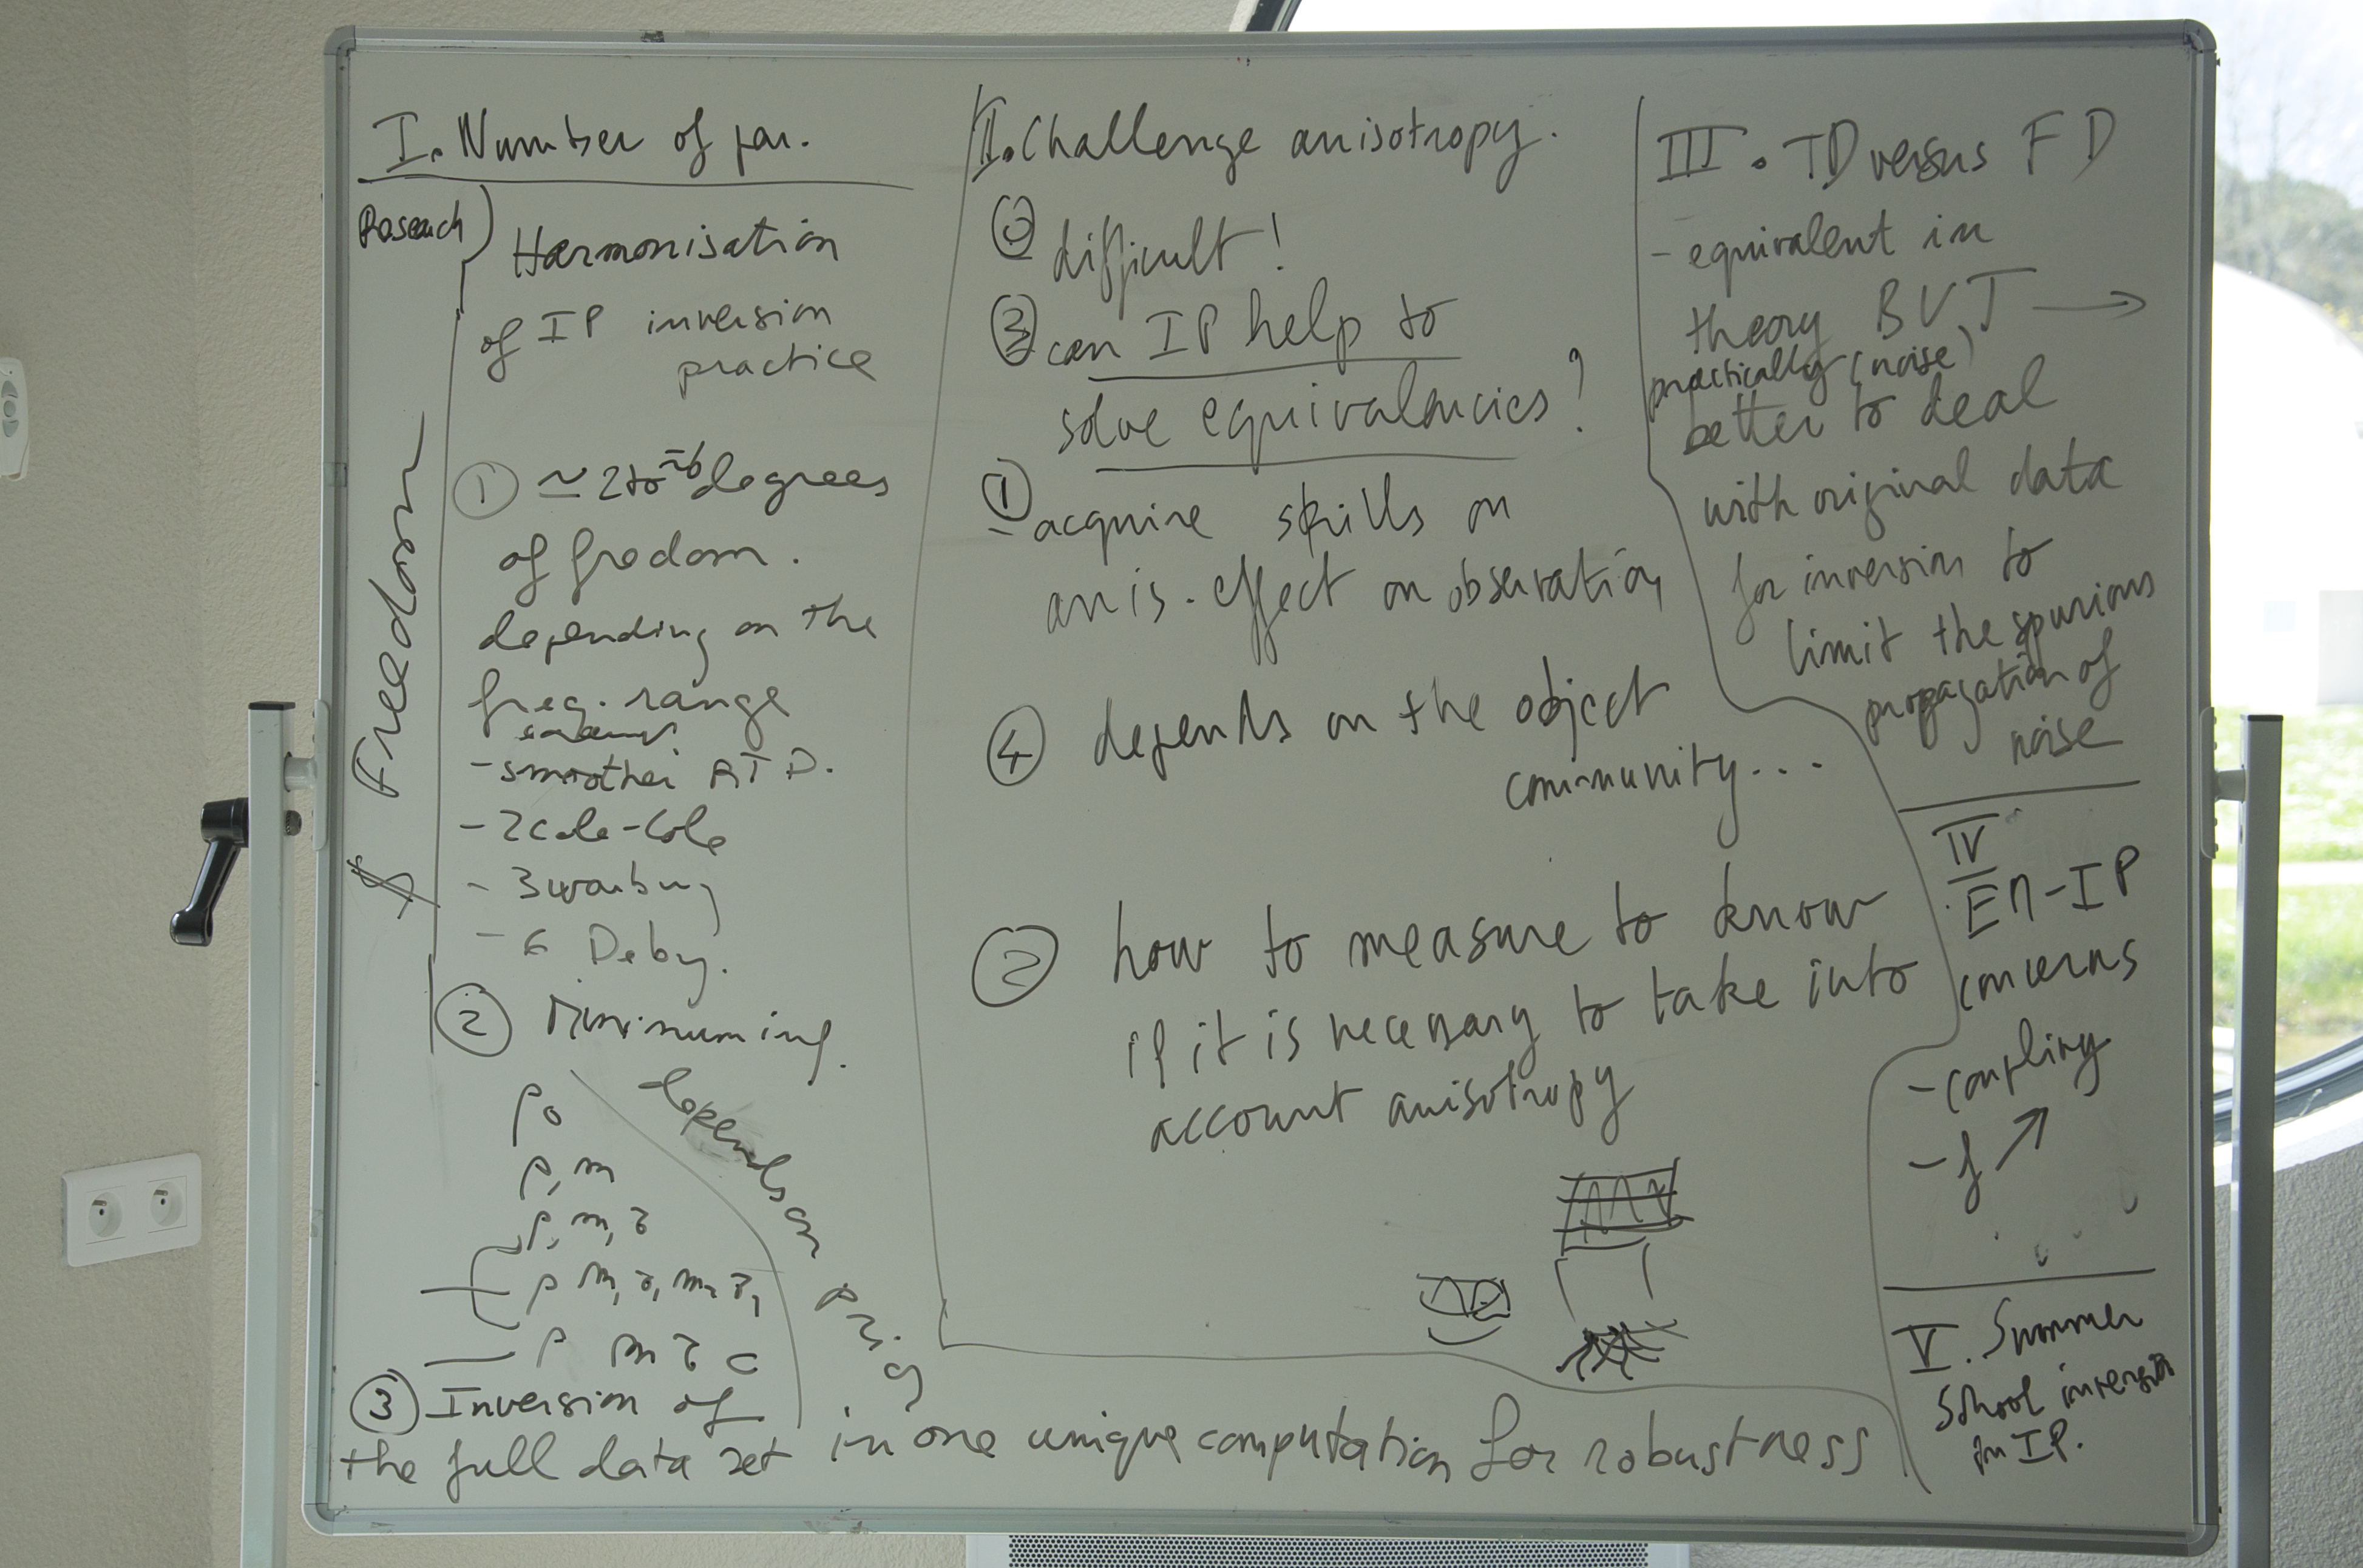 I. Number of par.
Harmonisation
of IP inversion
practice
Freedom
$
① ≃ 2 to ~6 degrees
of fredom.
depending on the
freq. range
- smoother RTD.
- 2 Cole-Cole
- 3 warburg
- 6 Deby.
② Minimum inf.
ρ0
ρ, m
ρ, m, τ
ρ m, τ, m2 τ2
ρ m τ c
depends on
③ Inversion of
the full data set in one unique computation for robustness
II. Challenge anisotropy.
difficult!
③ can IP help to
solve equivalencies?
① acquire skills on
anis. effect on observation
④ depends on the object
community...
② how to measure to know
if it is necessary to take into
account anisotropy
III. TD versus FD
- equivalent in
theory BUT →
practically (noise)
better to deal
with original data
for inversion to
limit the spurious
propagation of
noise
IV
EM-IP
concerns
- coupling
- f ↗
V. Summer
School inversion
in IP.